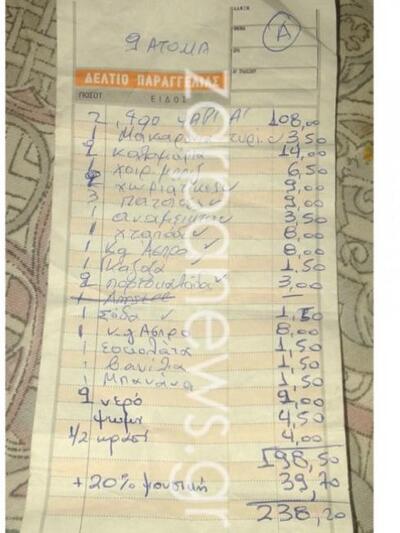 9 ΑΤΟΜΑ
Α
ΔΕΛΤΙΟ ΠΑΡΑΓΓΕΛΙΑΣ
ΠΟΣΟΥ ΕΙΔΟΣ
2 ψαρι Α' 108,00
1 Μακαρον τυρι 3,50
2 καλαμάρια 14,00
1 χοιρ 6,50
2 χωριάτικες 9,00
3 πατάτες 9,00
1 αναμεικτη 3,50
1 χταπόδι 8,00
1 κγ Άσπρο 8,00
1 1,50
2 πορτοκαλάδα 3,00
1
1 Σόδα 1,50
1 κγ Άσπρο 8,00
1 σοκολάτα 1,50
1 Βανίλια 1,50
1 Μπανάνα 1,50
9 νερό 9,00
ψωμι 4,50
1/2 κρασί 4,00
198,50
+20% μουσική 39,70
238,20
zarpanews.gr